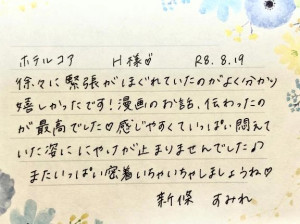 ホテルコア　H様♡　R8.8.19
徐々に緊張がほぐれていたのがよく分かり
嬉しかったです！漫画のお話、伝わったの
が最高でした♡感じやすくていっぱい悶えて
いた姿ににやけが止まりませんでした♪
またいっぱい密着いちゃいちゃしましょうね♡
新條　すみれ